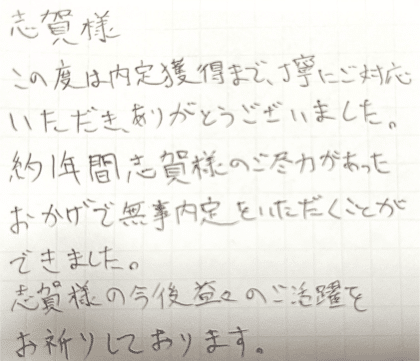 志賀様
この度は内定獲得まで、丁寧にご対応
いただき、ありがとうございました。
約1年間志賀様のご尽力があった
おかげで無事内定をいただくことが
できました。
志賀様の今後益々のご活躍を
お祈りしております。